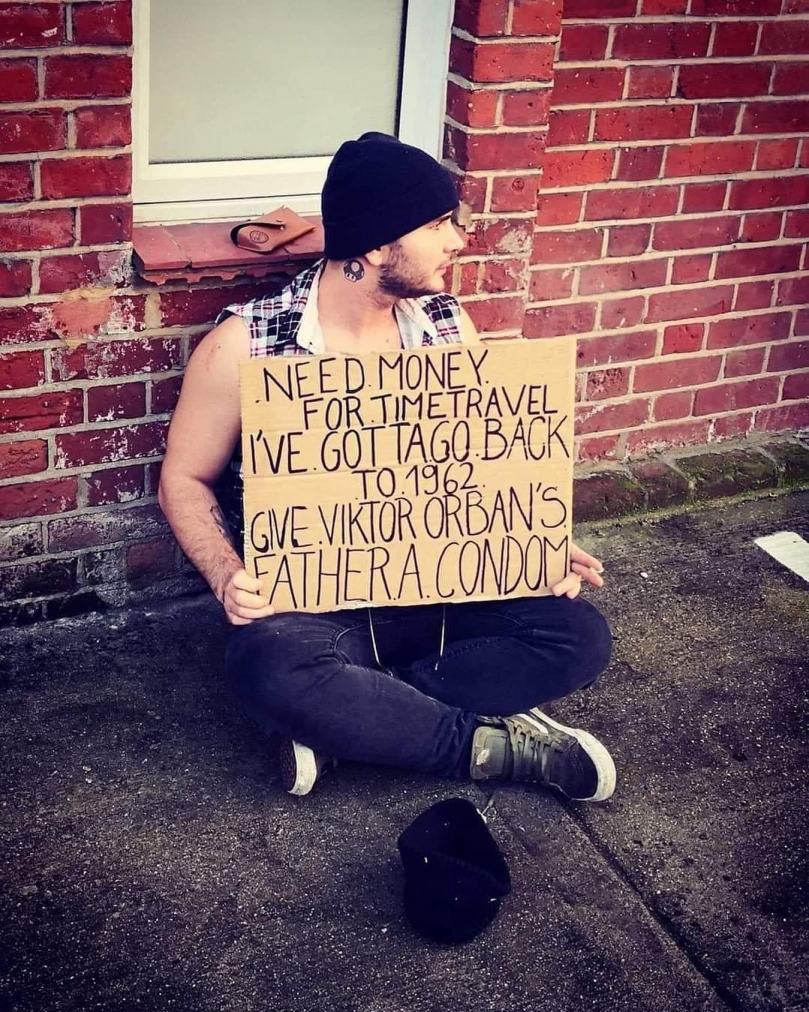 NEED.MONEY.
FOR.TIMETRAVEL
I'VE.GOTTAGO.BACK
TO.1962.
GIVE.VIKTOR ORBAN'S.
FATHER.A.CONDOM